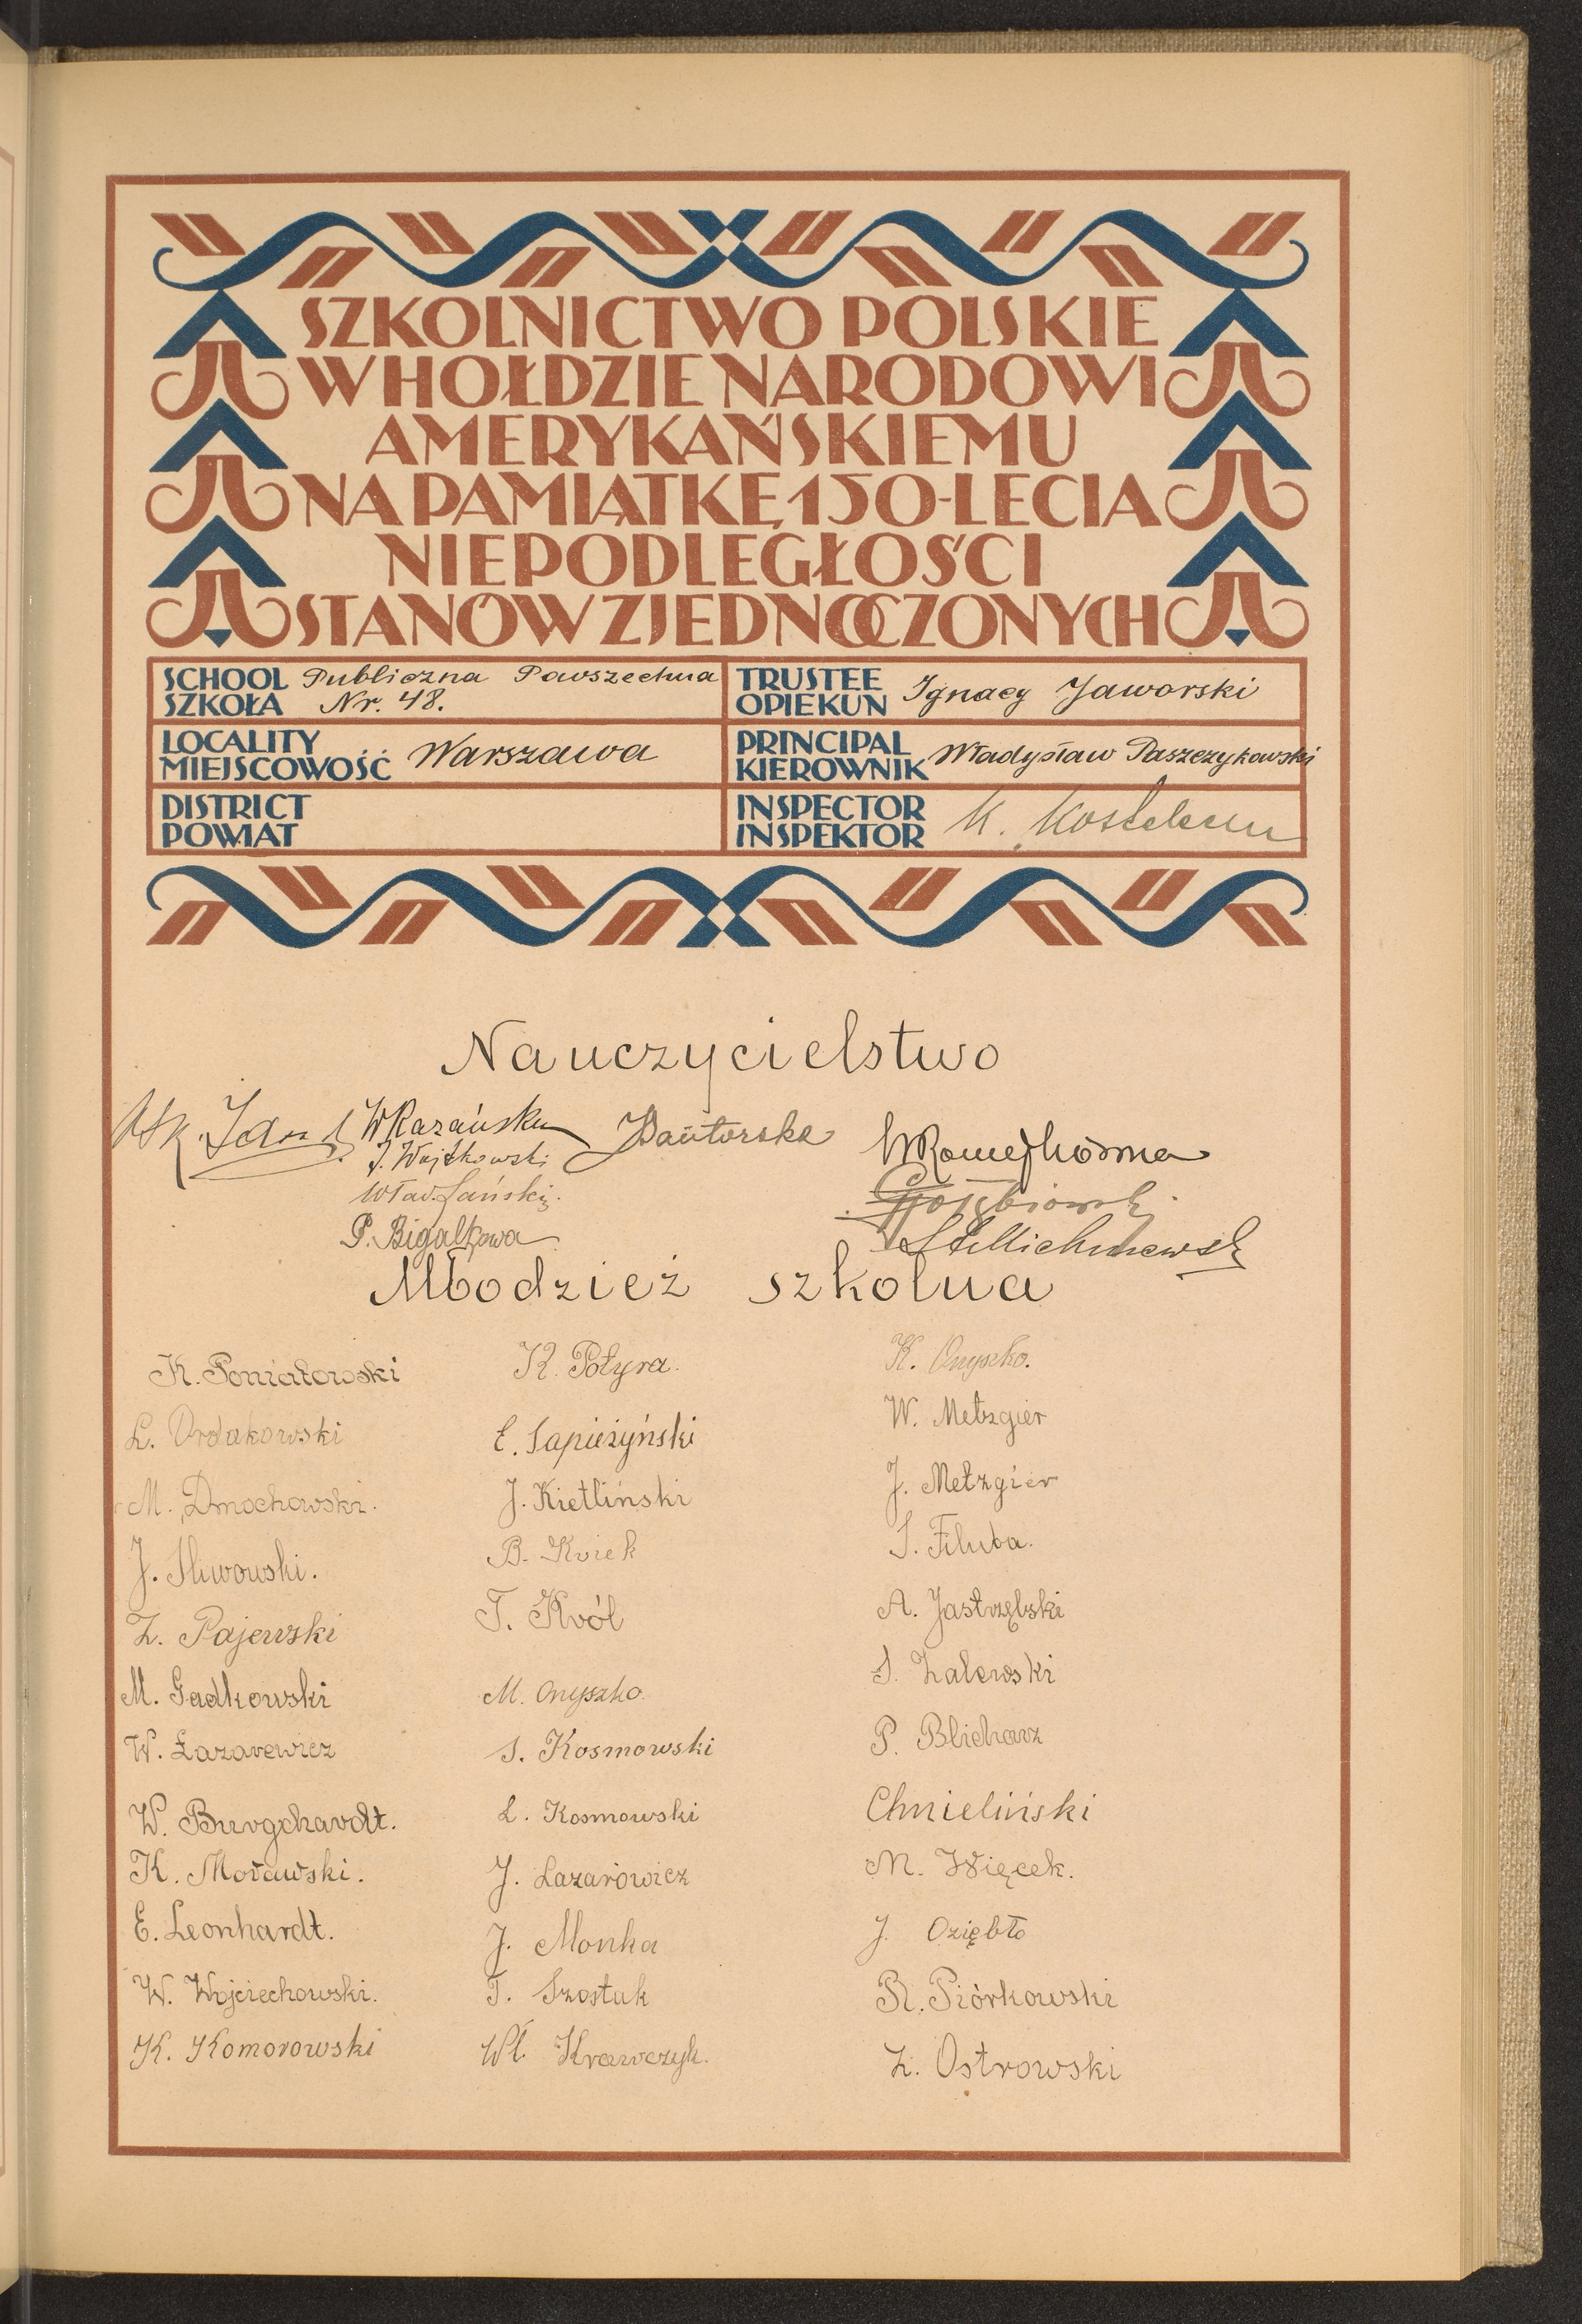 SZKOLNICTWO POLSKIE
W HOŁDZIE NARODOWI
AMERYKAŃSKIEMU
NA PAMIĄTKĘ 150-LECIA
NIEPODLEGŁOŚCI
STANÓW ZJEDNOCZONYCH
SCHOOL
SZKOŁA
Publiczna Powszechna
Nr. 48.
TRUSTEE
OPIEKUN
Ignacy Jaworski
LOCALITY
MIEJSCOWOŚĆ
Warszawa
PRINCIPAL
KIEROWNIK
Władysław Paszczykowski
DISTRICT
POWIAT
INSPECTOR
INSPEKTOR
K.
Nauczycielstwo
J. Wojtkowski
Wład. Łański
P. Bigalkowa
Młodzież szkolna
K. Poniatowski
L. Ordakowski
M. Dmochowski.
J. Śliwowski.
Z. Pajewski
M. Gadkowski
W. Łazarewicz
W. Burgchardt.
K. Morawski.
E. Leonhardt.
W. Wojciechowski.
K. Komorowski
K. Połyra.
E. Sapieżyński
J. Kietliński
B. Kwiek
T. Król
M. Onyszko.
S. Kosmowski
L. Kosmowski
J. Lazarowicz
J. Monka
T. Szostak
Wł. Krawczyk.
K. Onyszko.
W. Metzgier
J. Metzgier
S. Filuba.
A. Jastrzębski
S. Zalewski
P. Blicharz
Chmieliński
M. Więcek.
J. Oziębło
R. Piórkowski
Z. Ostrowski